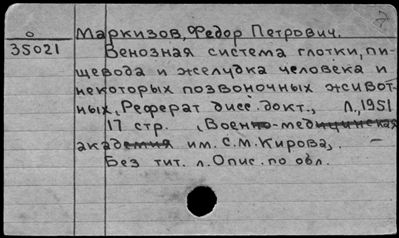 о Маркизов, Федор Петрович.
35021 Венозная система глотки, пи-
щевода и желудка человека и
некоторых позвоночных живот-
ных, Реферат дисс. докт., Л., 1951
17 стр. (Военно-медицинская
академия им. С.М. Кирова).
Без тит. л. Опис. по обл.